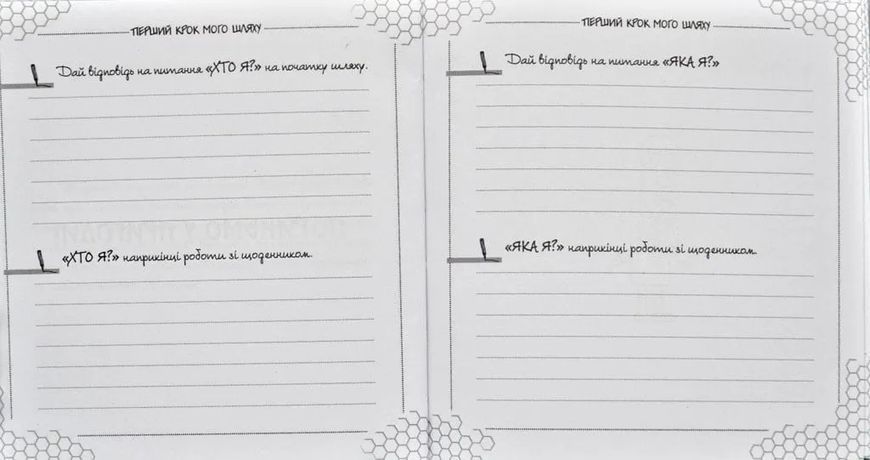 ПЕРШИЙ КРОК МОГО ШЛЯХУ
Дай відповідь на питання «ХТО Я?» на початку шляху.
«ХТО Я?» наприкінці роботи зі щоденником.
ПЕРШИЙ КРОК МОГО ШЛЯХУ
Дай відповідь на питання «ЯКА Я?»
«ЯКА Я?» наприкінці роботи зі щоденником.